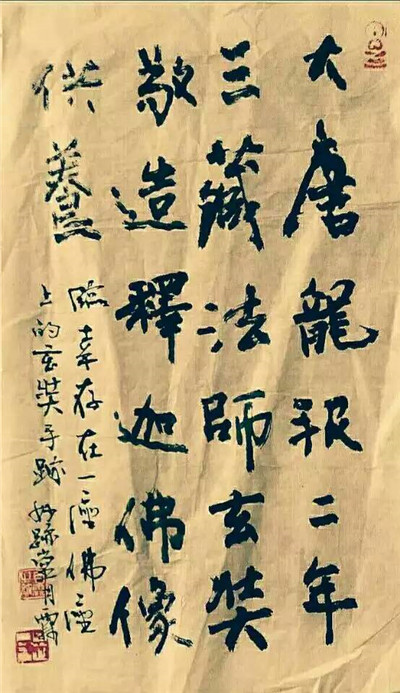 大唐龍朔二年
三藏法師玄奘
敬造釋迦佛像
供養
臨幸存在一座佛座
上的玄奘手跡